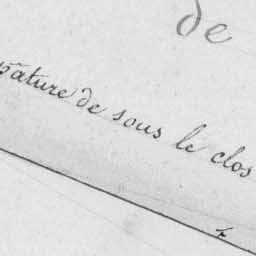 de
Pature de sous le clos